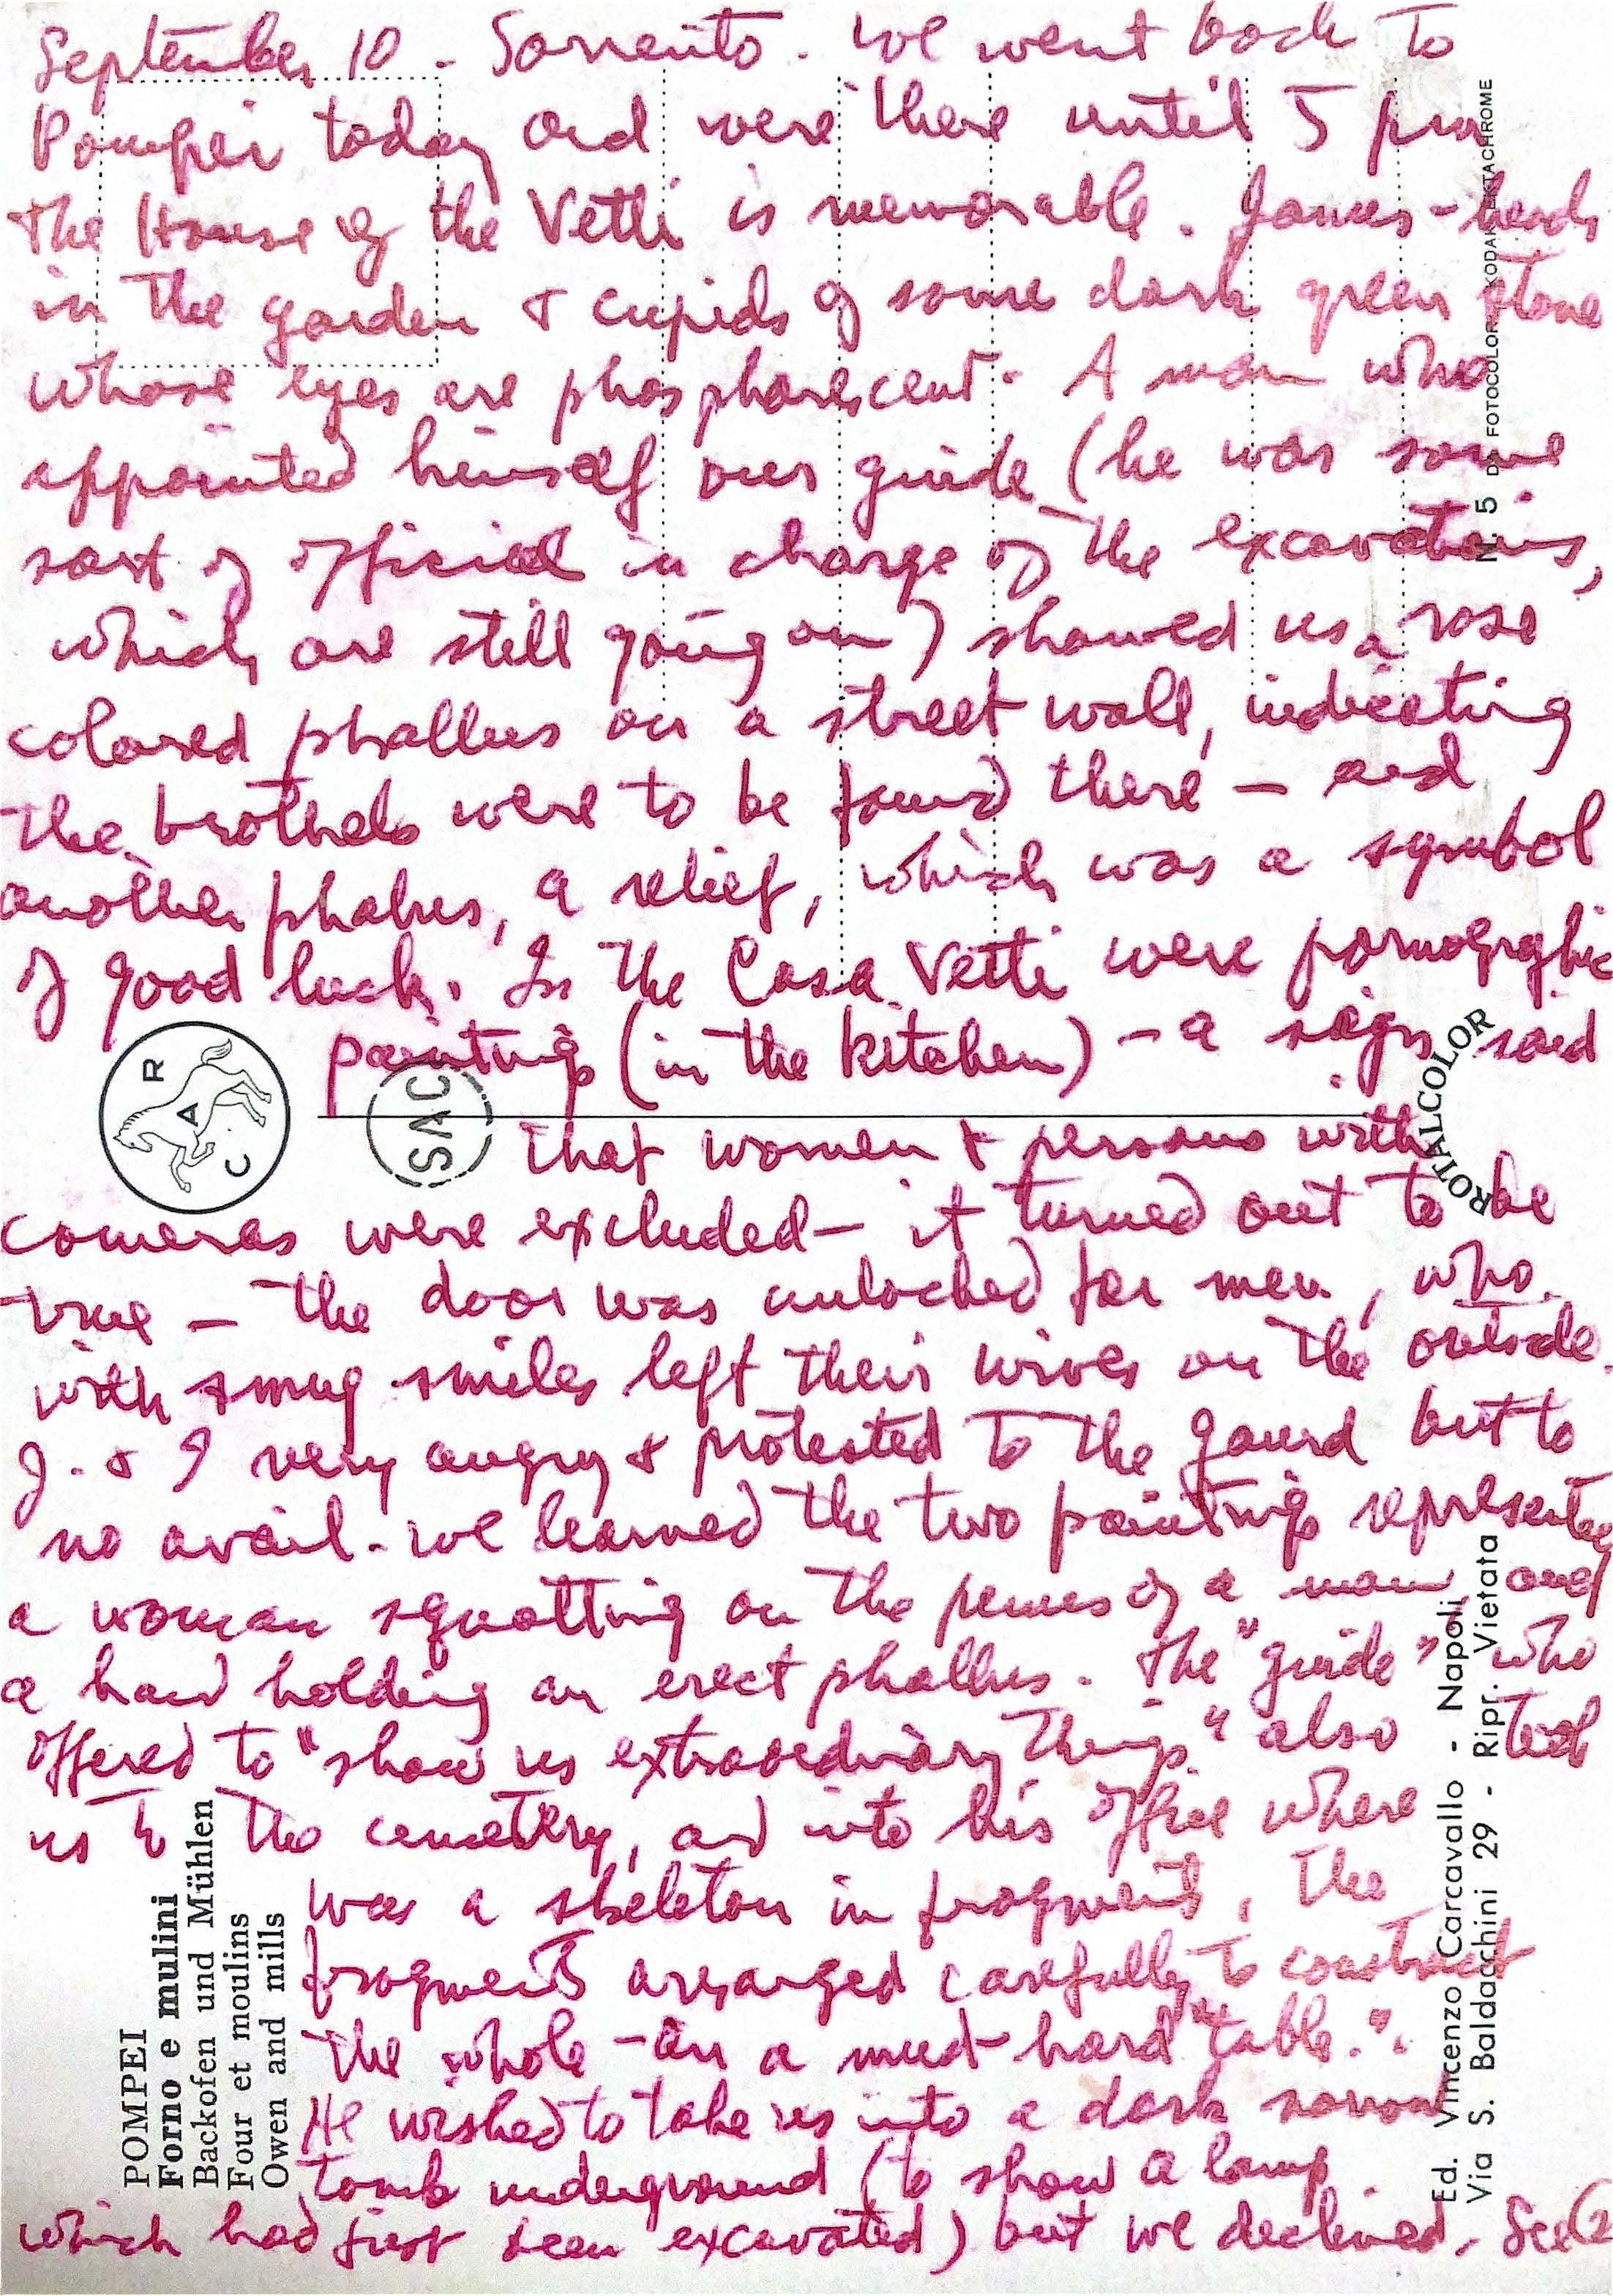 September 10 - Sorrento. We went back to
Pompeii today and were there until 5 pm
The House of the Vetti is memorable. Janus-heads
in the garden & cupids of some dark green stone
whose eyes are phosphorescent. A man who
appointed himself our guide (he was some
sort of official in charge of the excavations,
which are still going on) showed us a rose
colored phallus on a street wall, indicating
the brothels were to be found there — and
another phallus, a relief, which was a symbol
of good luck. In the Casa Vetti were pornographic
paintings (in the kitchen) — a sign said
that women & persons with
cameras were excluded — it turned out to be
true — the door was unlocked for men, who
with smug smiles left their wives on the outside.
J. & I very angry & protested to the gaurd but to
no avail. We learned the two paintings represented
a woman squatting on the penis of a man, and
a hand holding an erect phallus. The "guide" who
offered to "show us extraordinary things" also took
us to the cemetery, and into his office where
was a skeleton in fragments, the
fragments arranged carefully to construct
the whole - on a mud-hard "table."
He wished to take us into a dark narrow
tomb underground (to show a lamp
which had just been excavated) but we declined. See (2
POMPEI
Forno e mulini
Backofen und Mühlen
Four et moulins
Owen and mills
R A C
SAC
ROTALCOLOR
N. 5 DA FOTOCOLOR KODAK EKTACHROME
Ed. Vincenzo Carcavallo - Napoli
Via S. Baldacchini 29 - Ripr. Vietata